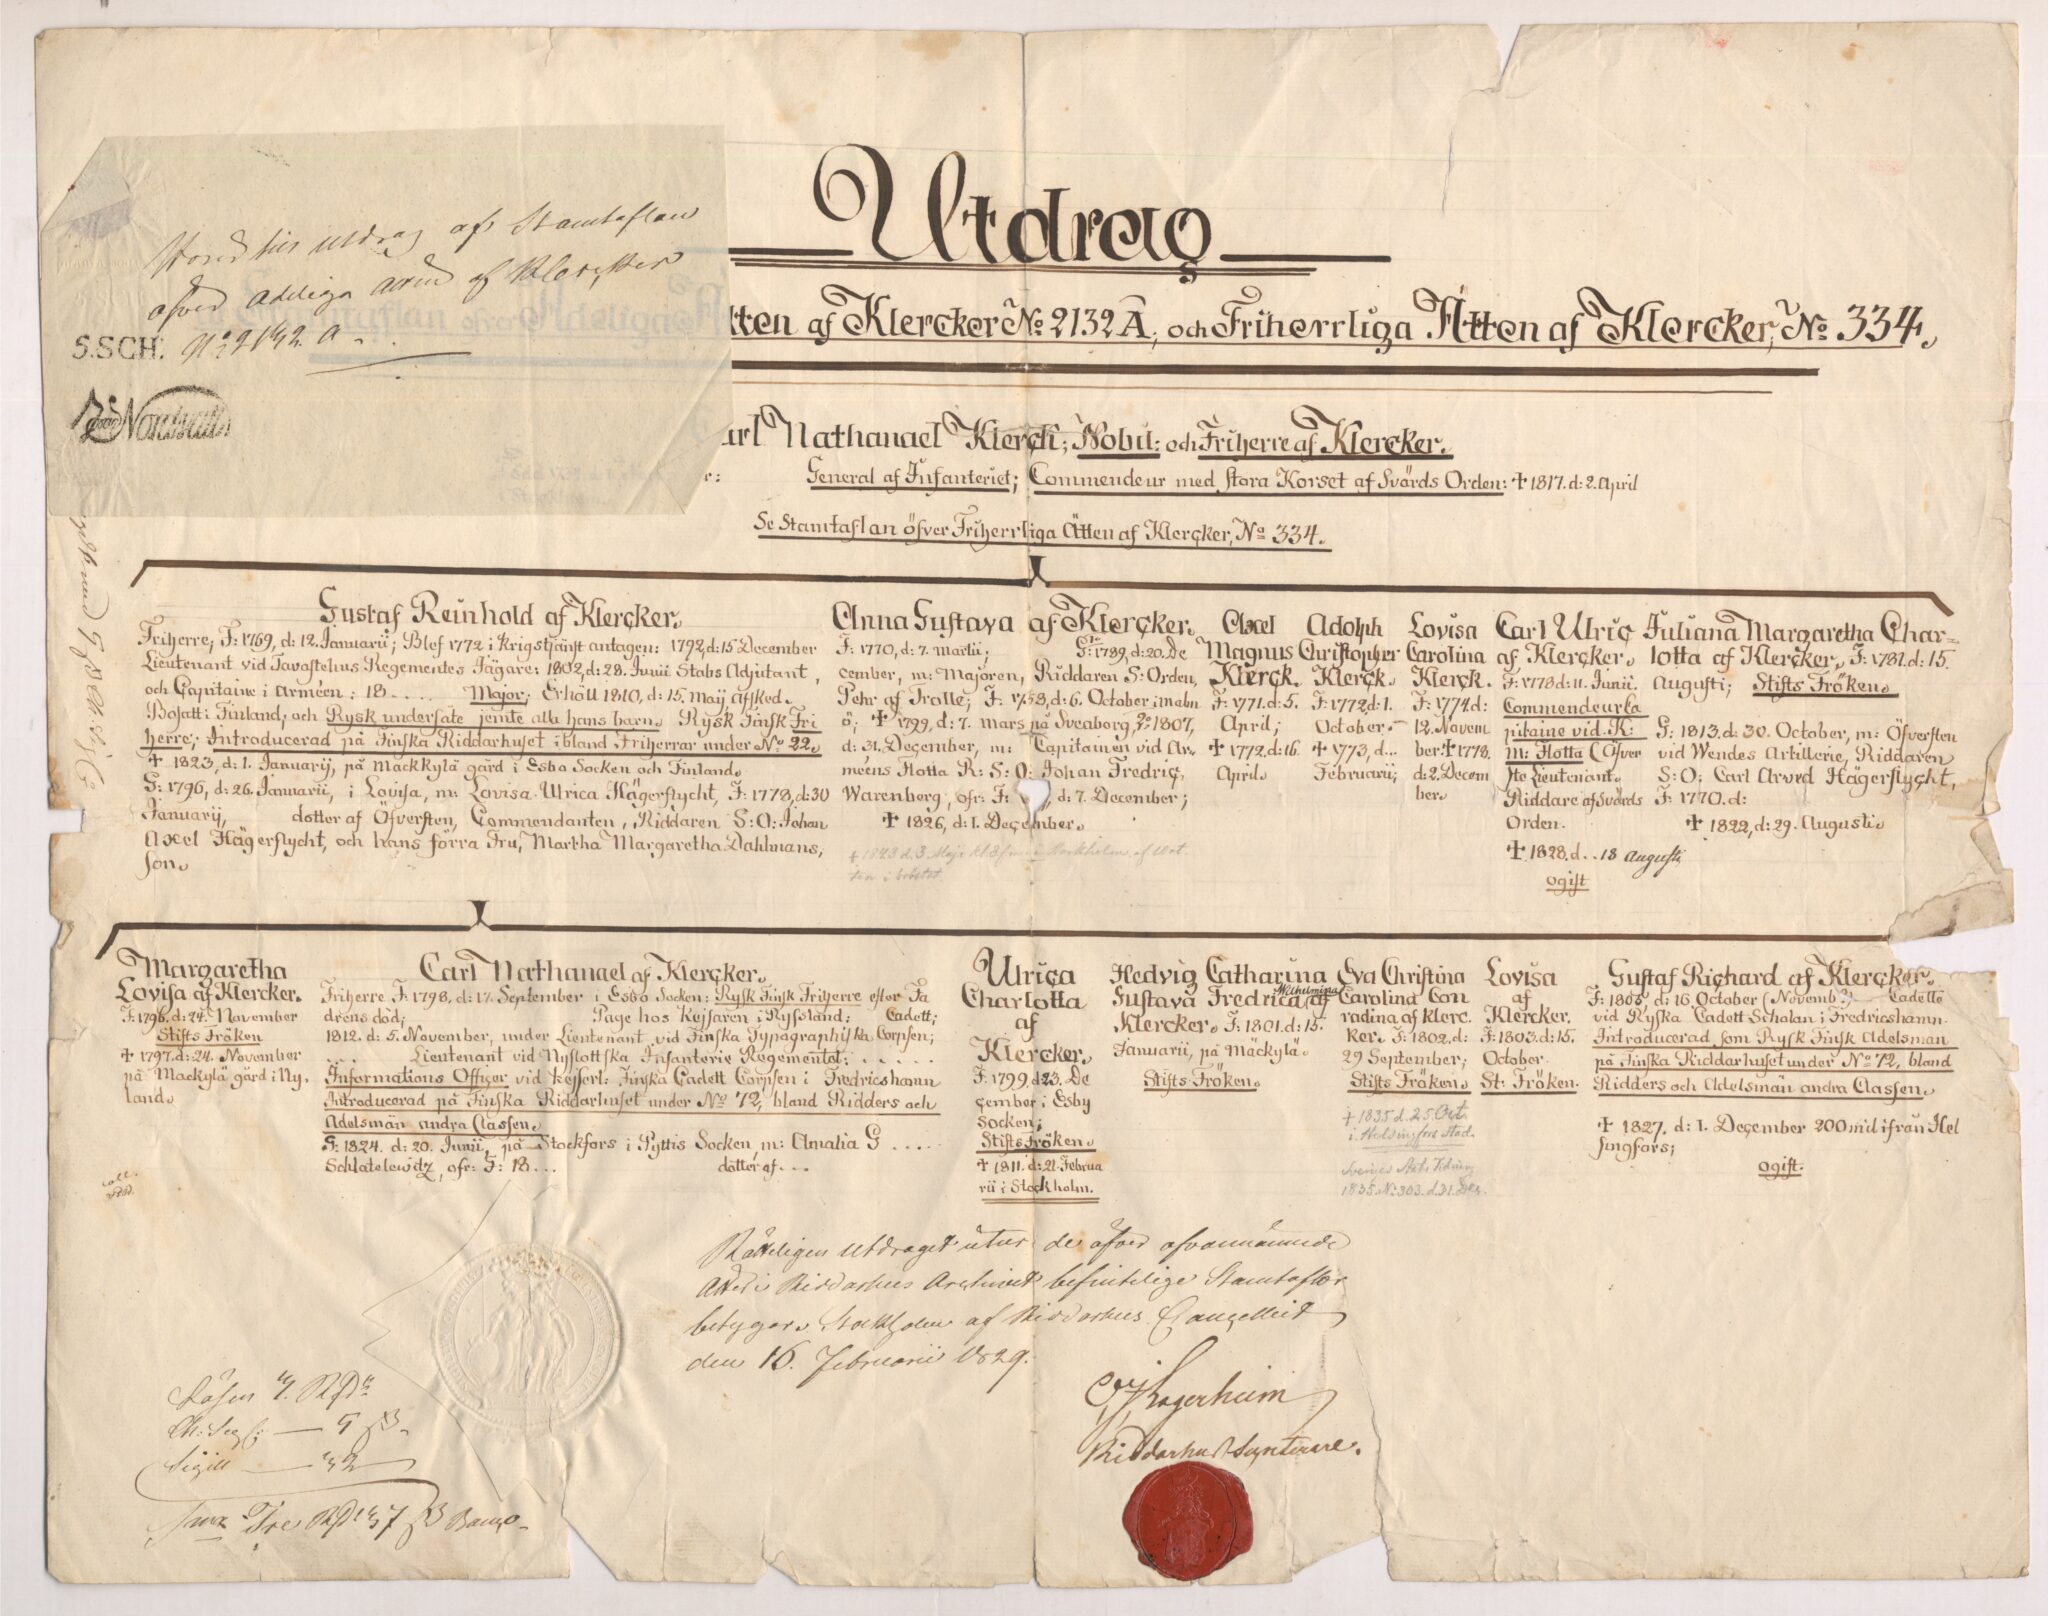 Utdrag
Stamtaflan öfver Adeliga Ätten af Klercker N:o 2132 A, och Friherrliga Ätten af Klercker, N:o 334.
utdrag af Stamtaflan
öfver Adeliga Ätten af Klercker
N:o 2132 A.
S.SCH.
Carl Nathanael Klerck; Nobil: och Friherre af Klercker.
General af Infanteriet; Commendeur med Stora Korset af Svärds Orden: ✝ 1817. d: 2. April
Se Stamtaflan öfver Friherrliga Ätten af Klercker, N:o 334.
Gustaf Reinhold af Klercker.
Friherre, F: 1769, d: 12. Januarii; Blef 1772 i krigstjänst antagen: 1792, d: 15 December
Lieutenant vid Tavastehus Regementes Jägare: 1802, d: 28. Junii Stabs Adjutant,
och Capitaine i Arméen: 18.... Major; Erhöll 1810, d: 15. Maij afsked.
Bosatt i Finland, och Rysk undersåte jemte alla hans barn. Rysk Finsk Fri
herre; Introducerad på Finska Riddarhuset ibland Friherrar under N:o 22.
✝ 1823, d: 1. Januarij, på Mäckkylä gård i Esbo Socken och Finland.
G: 1796, d: 26. Januarii, i Lovisa, m: Lovisa Ulrica Hägerflycht, F: 1778, d: 30
Januarij, dotter af Öfversten, Commendanten, Riddaren S: O: Johan
Axel Hägerflycht, och hans förra Fru, Martha Margaretha Dahlmans,
son.
Anna Gustava af Klercker.
F: 1770, d: 7. Martii; G: 1:o 1789, d: 20. De
cember, m: Majoren, Riddaren S: Orden,
Pehr af Trolle; F: 1758, d: 6. October i Malm
ö; ✝ 1799, d: 7. Mars på Sveaborg, 2:o 1807,
d: 31. December, m: Capitainen vid Ar
méens Flotta R: S: O: Johan Fredric
Warenberg, ofr: F: d: 7. December;
✝ 1826, d: 1. December.
✝ 1823 d. 3 Maji
Axel
Magnus
Klerck.
F: 1771. d: 5.
April;
✝ 1772. d: 16.
April.
Adolph
Christopher
Klerck.
F: 1772. d: 1.
October.
✝ 1773, d...
Februarii;
Lovisa
Carolina
Klerck.
F: 1774. d:
12. Novem
ber. ✝ 1778.
d: 2. Decem
ber.
Carl Ulric
af Klercker.
F: 1778 d: 11. Junii.
Commendeurca
pitaine vid K:
M: Flotta (Öfver
ste Lieutenant.
Riddare af Svärds
Orden.
✝ 1828. d.. 18 Augusti
ogift
Juliana Margaretha Char-
lotta af Klercker, F: 1781. d: 15.
Augusti; Stifts Fröken.
G: 1813. d: 30. October, m: Öfversten
vid Wendes Artillerie, Riddaren
S: O; Carl Arved Hägerflycht,
F: 1770. d:
✝ 1822, d: 29. Augusti.
Margaretha
Lovisa af Klercker.
F: 1796. d: 24. November
Stifts Fröken
✝ 1797. d: 24. November
på Mackylä gård i Ny.
land.
Carl Nathanael af Klercker.
Friherre F: 1798, d: 17. September i Esbo Socken: Rysk Finsk Friherre efter Fa
drens död; Page hos Kejsaren i Ryssland; Cadett;
1812. d: 5. November, under Lieutenant vid Finska Typographiska Corpsen;
... Lieutenant vid Nyslottska Infanterie Regementet; ......
Informations Officer vid Kejserl: Finska Cadett Corpsen i Fredricshamn
Introducerad på Finska Riddarhuset under N:o 72, bland Ridders och
Adelsmän andra Classen.
G: 1824. d: 20. Junii, på Stockfors i Pyttis Socken, m: Amalia G ....
Schlatelewitz, ofr: F: 18... dotter af...
Ulrica
Charlotta
af
Klercker.
F: 1799. d: 23. De
cember i Esby
Socken;
Stifts Fröken.
✝ 1811. d: 21. Februa
rii i Stockholm.
Hedvig Catharina
Gustava Fredrica Wilhelmina af
Klercker. F: 1801. d: 15.
Januarii, på Mäckylä.
Stifts Fröken.
Eva Christina
Carolina Con
radina af Klerc.
ker. F: 1802. d:
29 September;
Stifts Fröken.
✝ 1835 d. 25 Oct.
i Helsingfors stad.
1835. N:o 303. d. 31. Dec.
Lovisa
af
Klercker.
F: 1803. d: 15.
October.
St: Fröken.
Gustaf Richard af Klercker.
F: 1805, d: 16. October (Novemb?) Cadette
vid Ryska Cadett Scholan i Fredricshamn.
Introducerad som Rysk Finsk Adelsman
på Finska Riddarhuset under N:o 72, bland
Ridders och Adelsmän andra Classen.
✝ 1827. d: 1. December 200 mil ifrån Hel
singfors;
ogift.
Rätteligen utdraget utur de öfver ofvannämnde
Ätter i Riddarhus Archivet befintelige Stamtaflor
betygar. Stockholm af Riddarhus Cancelliet
den 16. Februarii 1829.
Lagerheim
Riddarhus Secreterare.
Lösen
Sigill 32